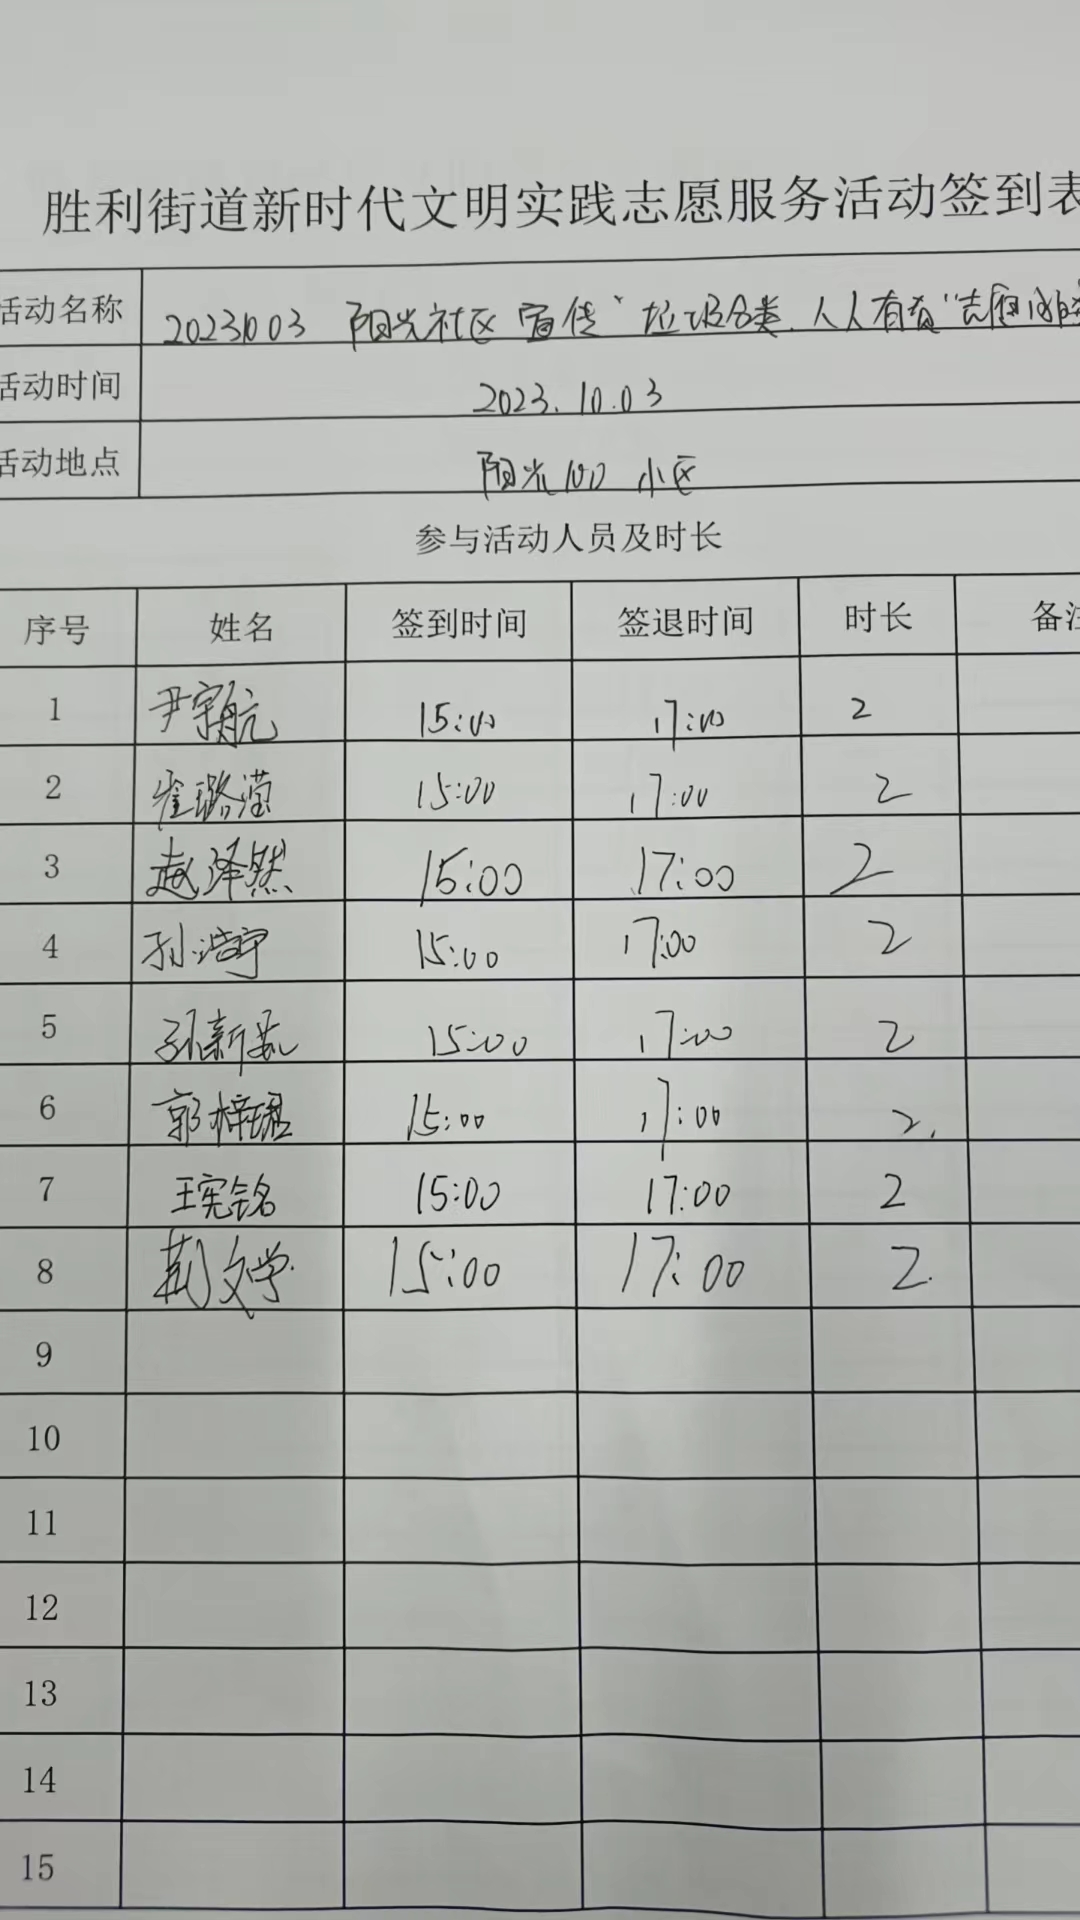 胜利街道新时代文明实践志愿服务活动签到表
活动名称 20231003 阳光社区宣传“垃圾分类,人人有责”志愿
活动时间 2023.10.03
活动地点 阳光100 小区
参与活动人员及时长
序号 姓名 签到时间 签退时间 时长 备注
1 尹宗航 15:00 17:00 2
2 崔璐滢 15:00 17:00 2
3 赵泽然 15:00 17:00 2
4 孙浩宇 15:00 17:00 2
5 孙新茹 15:00 17:00 2
6 郭梓珺 15:00 17:00 2.
7 王宪铭 15:00 17:00 2
8 文学 15:00 17:00 2.
9
10
11
12
13
14
15